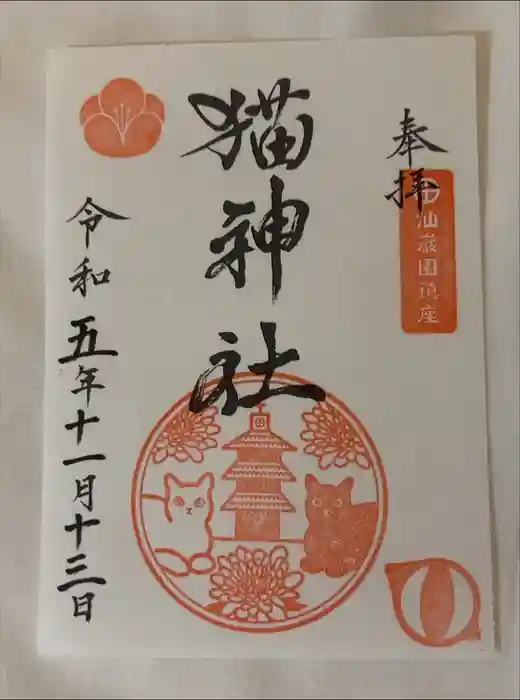 奉拝
仙巌園鎮座
猫神社
令和五年十一月十三日